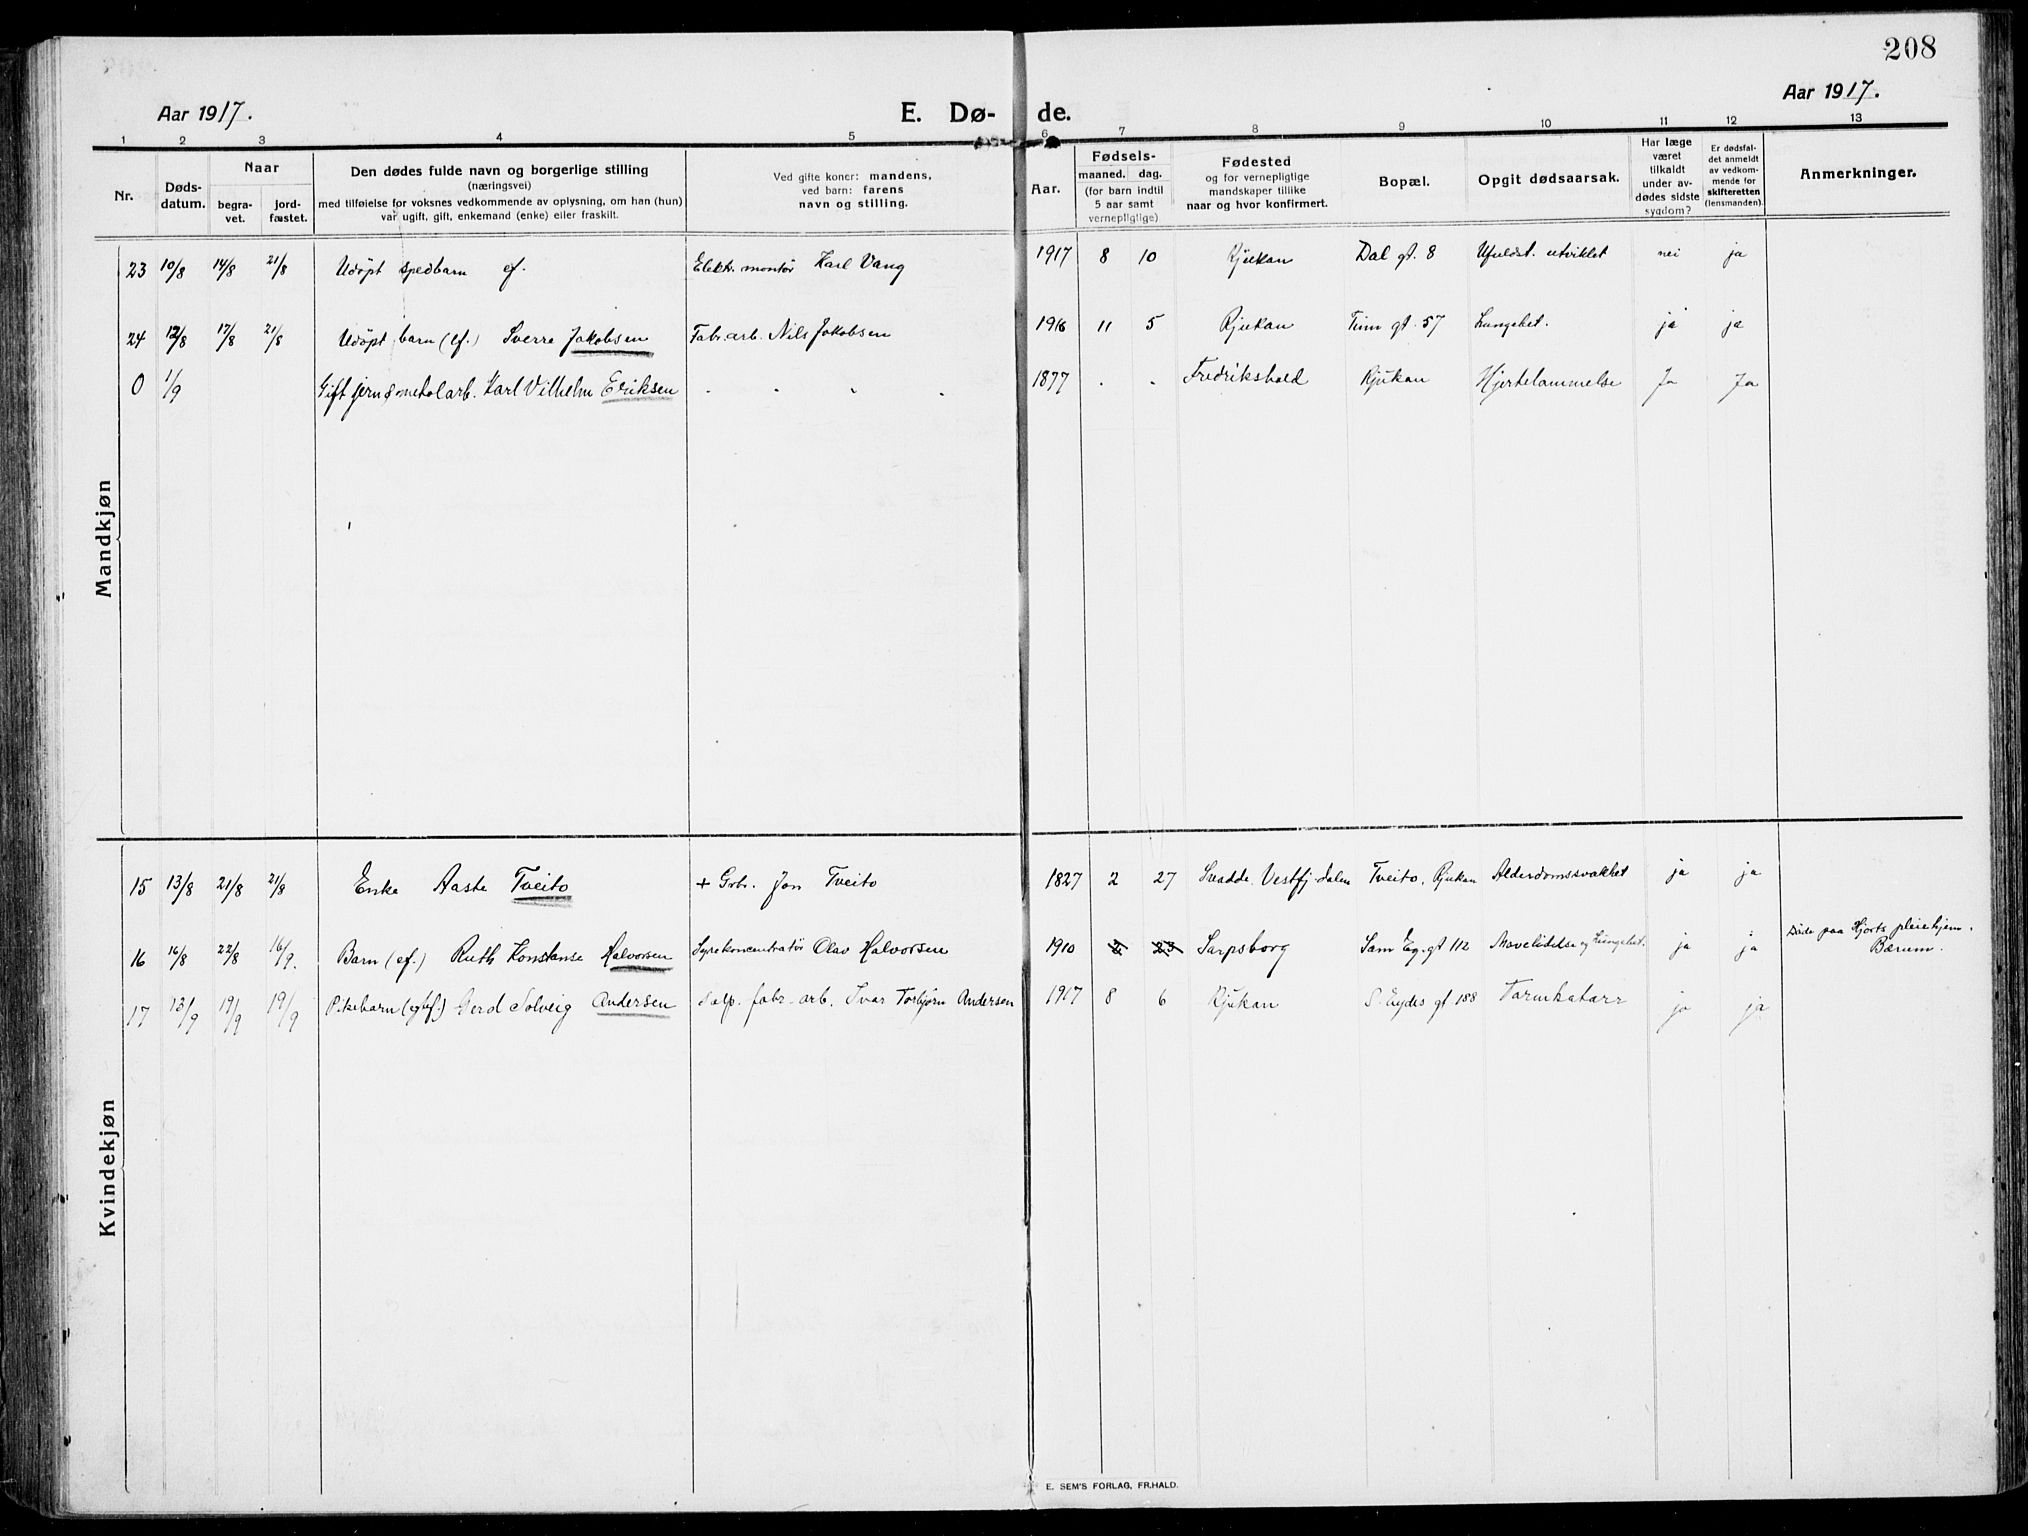 208
Aar 1917. E. Dø- de. Aar 1917.
1 2 3 4 5 6 7 8 9 10 11 12 13
Nr. Døds-datum. Naar begra-vet. jord-fæstet. Den dødes fulde navn og borgerlige stilling (næringsvei) med tilføielse for voksnes vedkommende av oplysning, om han (hun) var ugift, gift, enkemand (enke) eller fraskilt. Ved gifte koner: mandens, ved barn: farens navn og stilling. Aar. Fødsels- maaned. dag. (for barn indtil 5 aar samt vernepligtige) Fødested og for vernepligtige mandskaper tillike naar og hvor konfirmert. Bopæl. Opgit dødsaarsak. Har læge været tilkaldt under av-dødes sidste sygdom? Er dødsfal-det anmeldt av vedkom-mende for skifteretten (lensmanden). Anmerkninger.
Mandkjøn
23 10/8 14/8 21/8 Udøpt spedbarn ef. Elektr. montør Karl Vang 1917 8 10 Rjukan Dal gt. 8 Ufuldst. utviklet nei ja
24 12/8 17/8 21/8 Udøpt barn (ef.) Sverre Jakobsen Fabr. arb. Nils Jakobsen 1916 11 5 Rjukan Tinn gt. 57 Lungebet. ja ja
0 1/9 Gift jern & metalarb. Karl Vilhelm Eriksen 1877 Fredrikshald Rjukan Hjertelammelse Ja Ja
Kvindekjøn
15 13/8 21/8 21/8 Enke Aaste Tveito + Grb. Jon Tveito 1827 2 27 Svadde, Vestfj-dalen Tveito, Rjukan Alderdomssvakhet ja ja
16 16/8 22/8 16/9. Barn (ef.) Ruth Konstanse Halvorsen Syrekoncentratør Olav Halvorsen 1910 2 23 Sarpsborg Sam Ey. gt 112 Mavelidelse og Lungebet. ja ja Døde paa Hjorts pleiehjem. Bærum.
17 13/9 19/9 19/9 Pikebarn (egtef.) Gerd Solveig Andersen Salp. fabr. arb. Ivar Torbjørn Andersen 1917 8 6 Rjukan S. Eydes gt 188 Tarmkatarr ja ja
E. SEM'S FORLAG, FR.HALD.